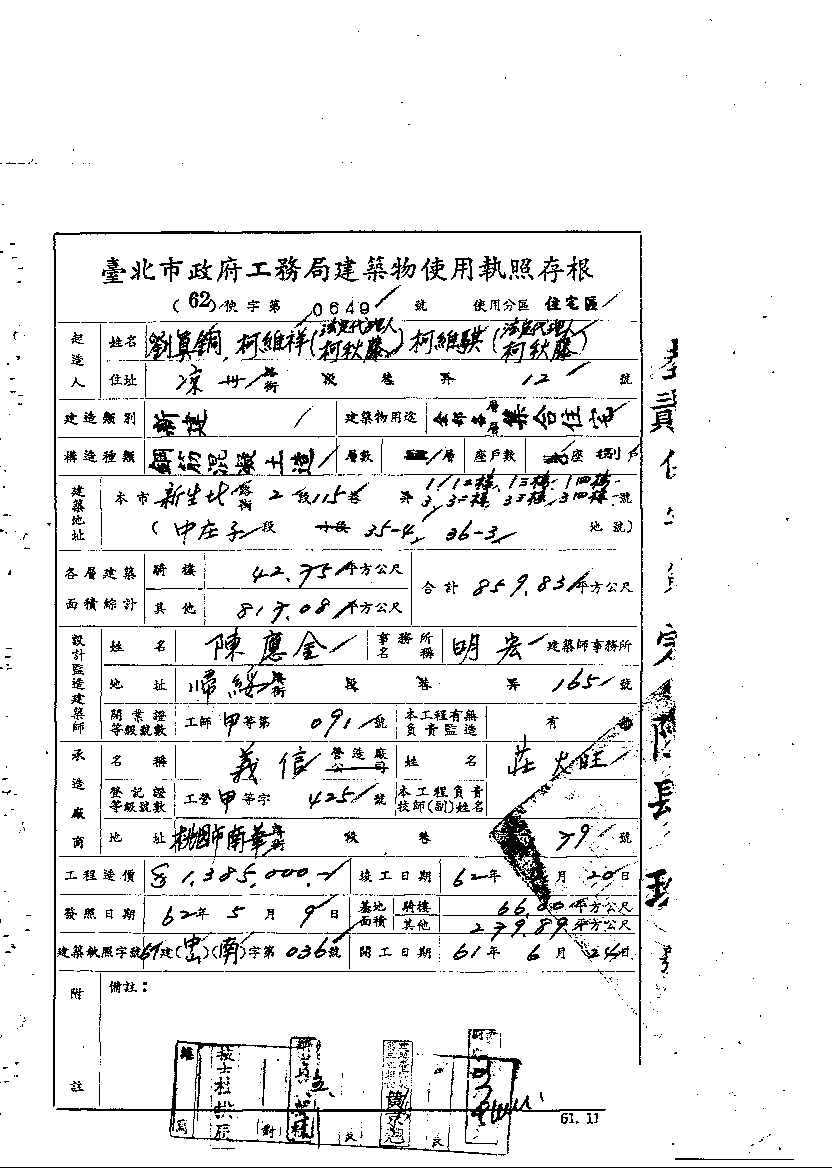 臺北市政府工務局建築物使用執照存根
(62)使字第 0649 號 使用分區 住宅區
起造人 姓名 劉真銅、柯維祥(法定代理人柯秋藤)柯維騏(法定代理人柯秋藤)
住址 涼州街 段 巷 弄 12 號
建造類別 新建 建築物用途 全部各層集合住宅
構造種類 鋼筋混凝土造 層數 層 座戶數 座 戶
建築地址 本市 新生北路 2 段 115 巷 弄 1, 1二樓, 1三樓, 1四樓, 3, 3二樓, 3三樓, 3四樓 號
(中庄子段 小段 35-4, 36-3 地號)
各層建築面積綜計 騎樓 42.75 平方公尺 合計 859.83 平方公尺
其他 817.08 平方公尺
設計監造建築師 姓名 陳應全 事務所名稱 明宏 建築師事務所
地址 歸綏街 段 巷 弄 165 號
開業證等級號數 工師 甲 等第 091 號 本工程有無負責監造 有
承造廠商 名稱 義信 營造廠公司 姓名 莊火旺
登記證等級號數 工營 甲 等字 425 號 本工程負責技師(副)姓名
地址 桃園市南華街 段 巷 79 號
工程造價 1,385,000.- 竣工日期 62年 月 20日
發照日期 62年 5月 9日 基地面積 騎樓 66.00 平方公尺
其他 279.89 平方公尺
建築執照字號 61建(中)(南)字第 036 號 開工日期 61年 6月 24日
附註 備註:
61. 11